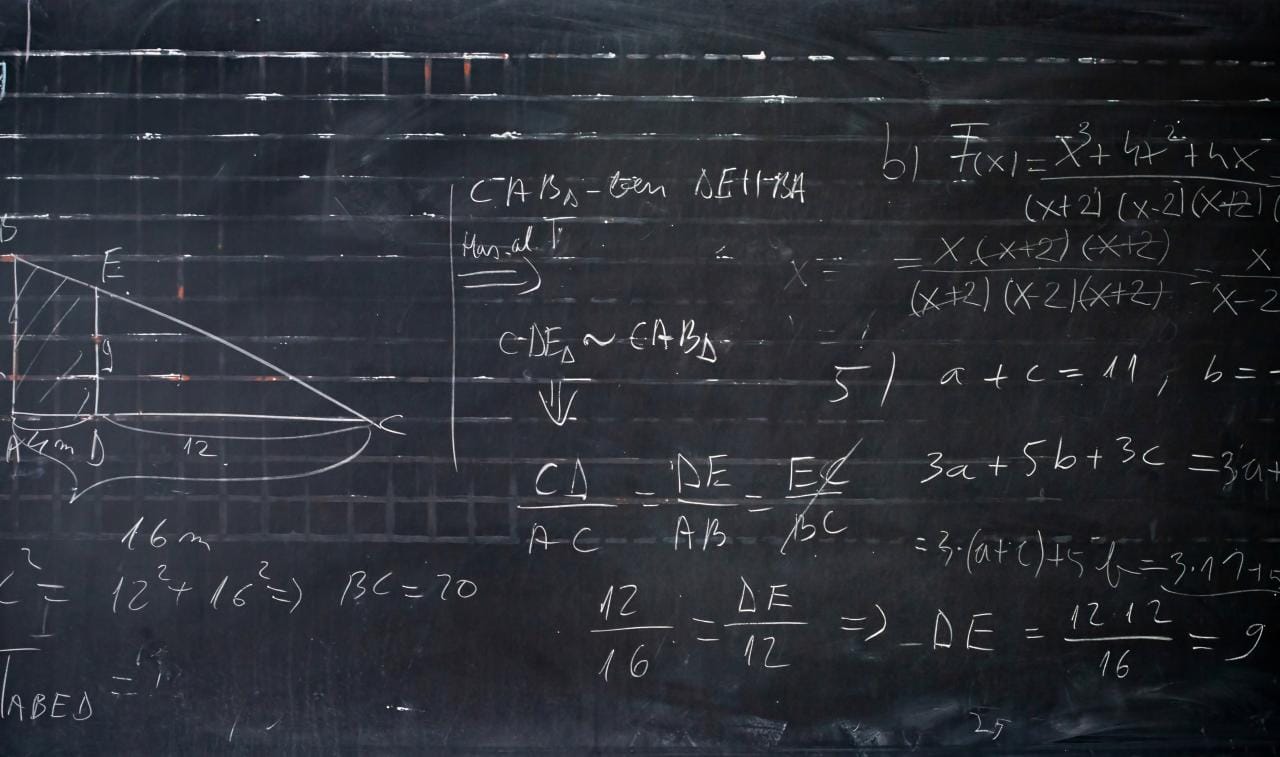 B
E
9
A 4m D
12
C
16m
² = 12² + 16² => BC = 20
ABED =
CAB△ - DE || BA
=>
CDE△ ~ CAB△
⇓
CD/AC = DE/AB = EC/BC
12/16 = DE/12 => DE = 12·12/16 = 9
b) F(x) = x³ + 4x² + 4x / (x+2)(x-2)(x+2)
= x(x+2)(x+2) / (x+2)(x-2)(x+2) = x / x-2
5) a + c = 11, b = -
3a + 5b + 3c = 3a+
= 3·(a+c)+5·b = 3·11+5